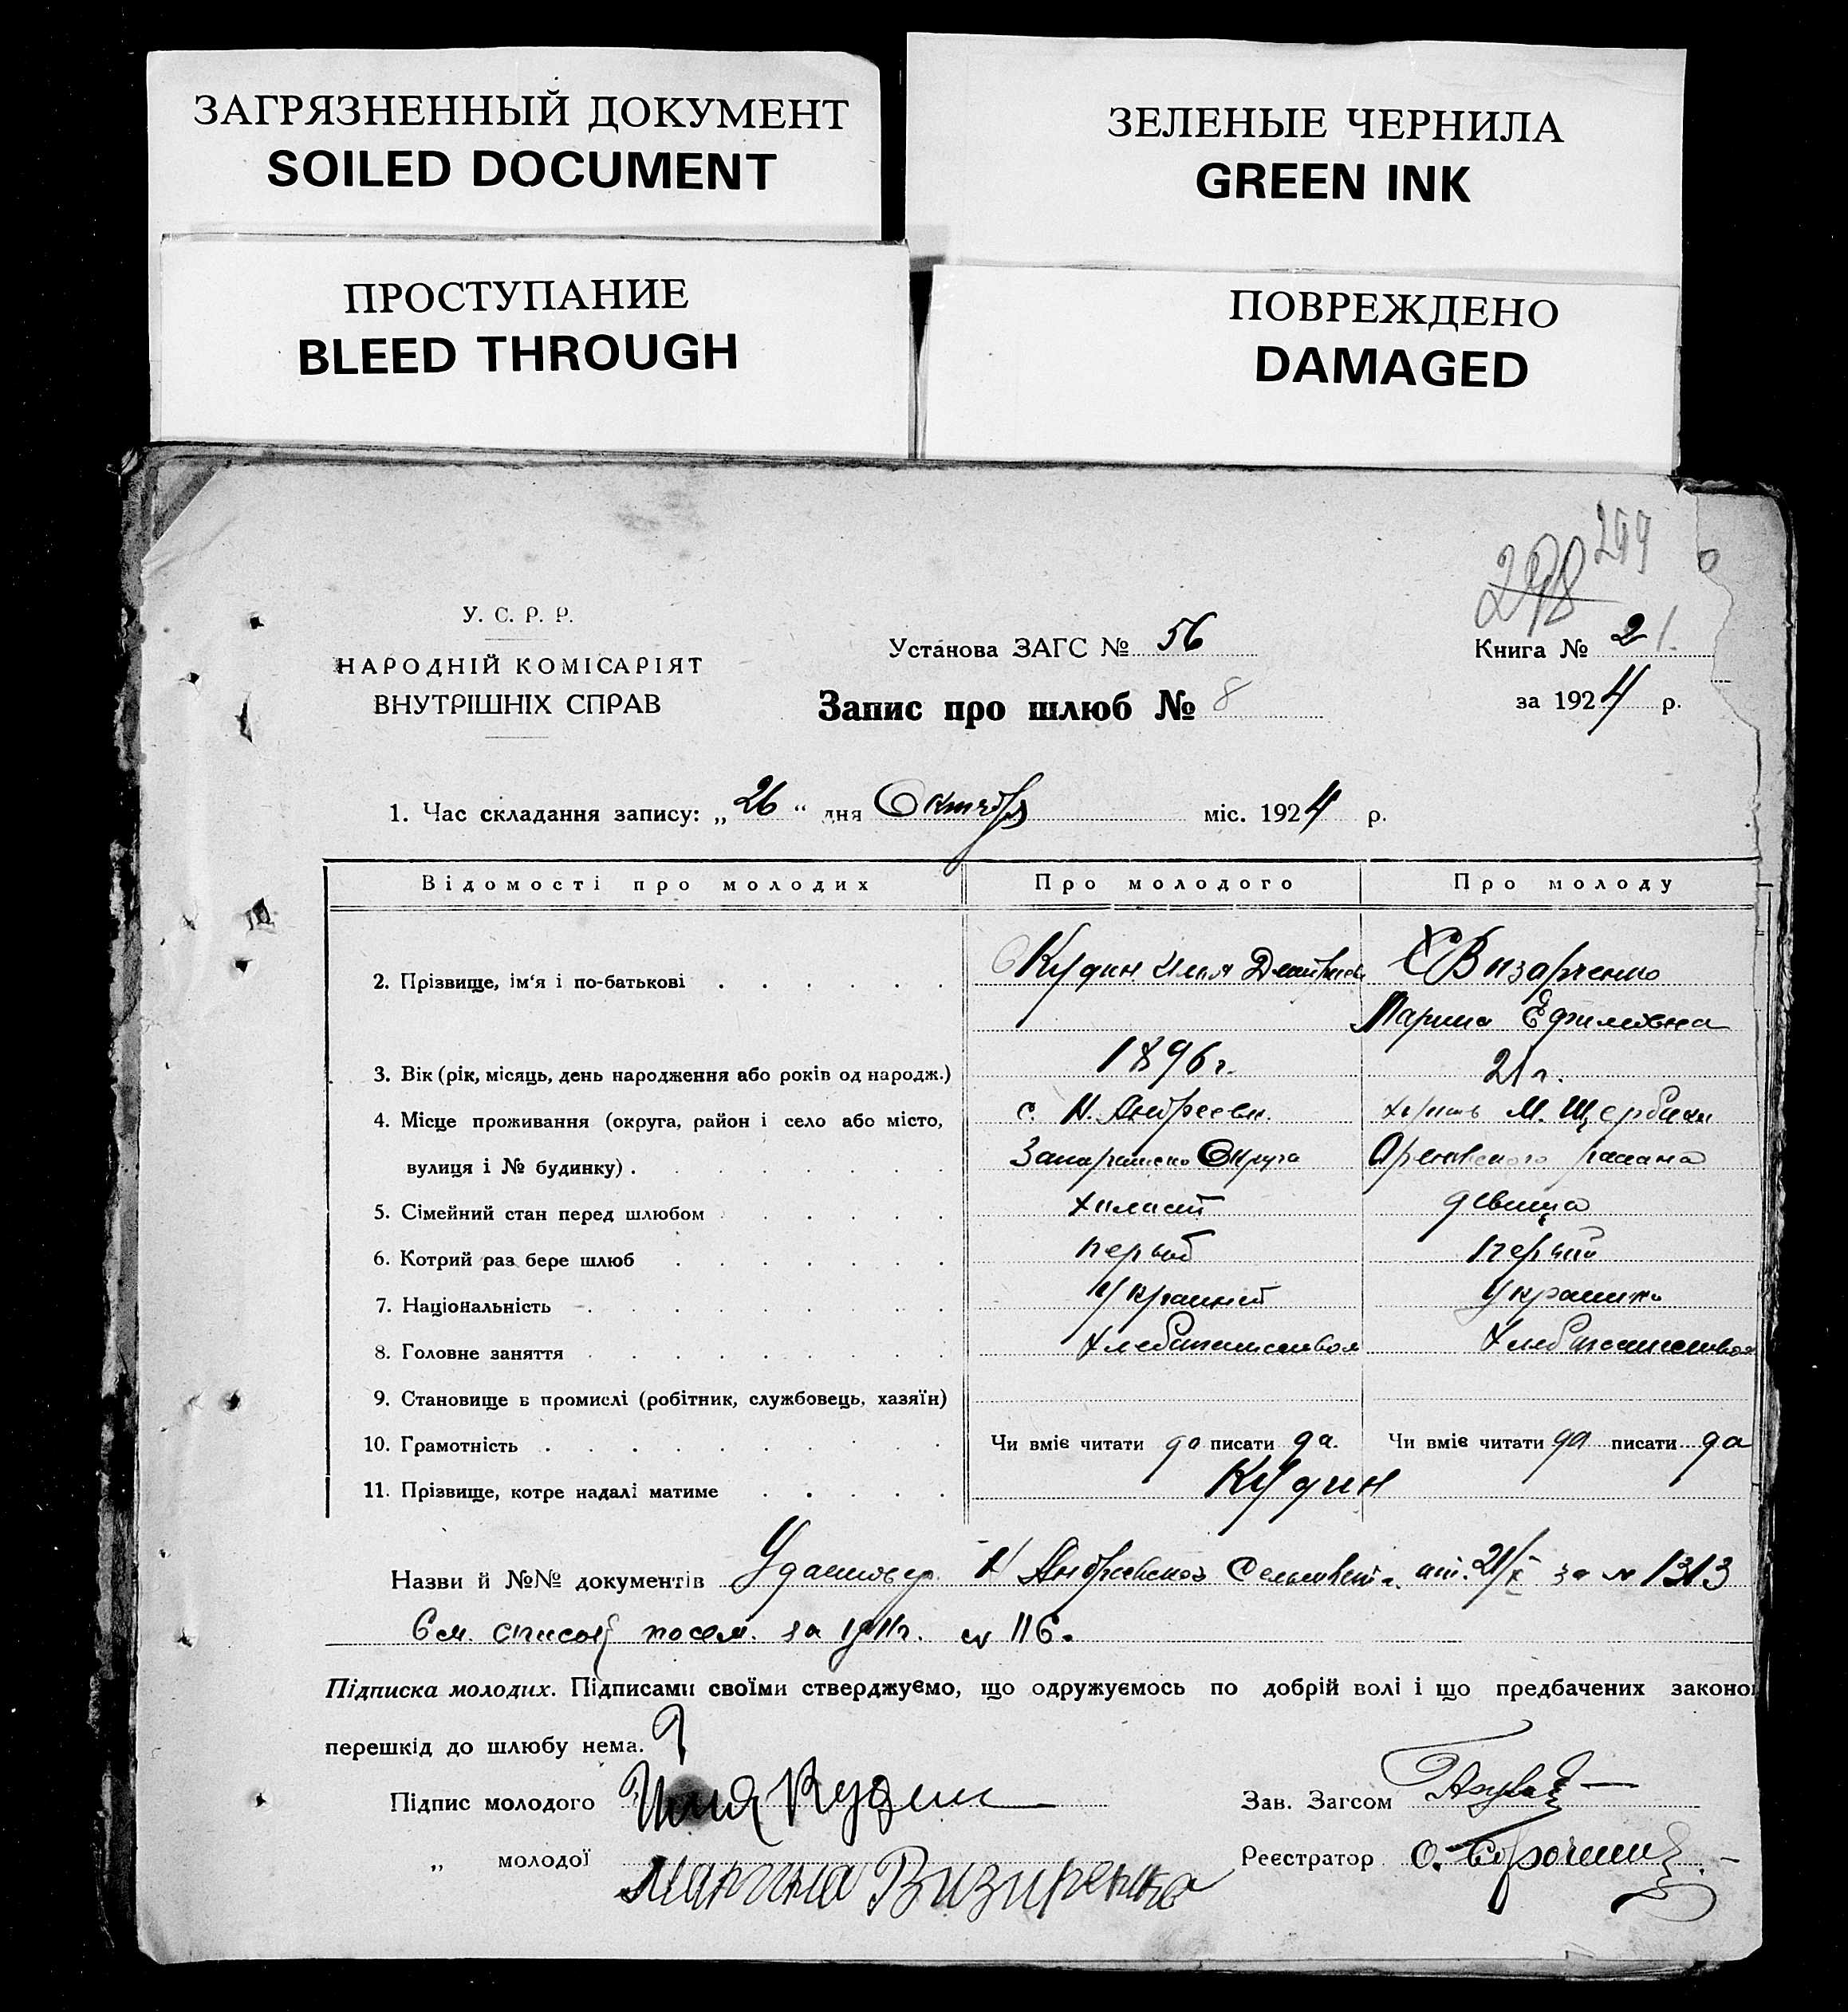 ЗАГРЯЗНЕННЫЙ ДОКУМЕНТ
SOILED DOCUMENT
ЗЕЛЕНЫЕ ЧЕРНИЛА
GREEN INK
ПРОСТУПАНИЕ
BLEED THROUGH
ПОВРЕЖДЕНО
DAMAGED
298 299
У. С. Р. Р.
НАРОДНІЙ КОМІСАРІЯТ
ВНУТРІШНІХ СПРАВ
Установа ЗАГС № 56
Запис про шлюб № 8
Книга № 21.
за 1924 р.
1. Час складання запису: „26“ дня Октября міс. 1924 р.
Відомості про молодих Про молодого Про молоду
2. Прізвище, ім'я і по-батькові Кудин Илья Дмитриев
Марина Ефимовна
3. Вік (рік, місяць, день народження або років од народж.) 1896 г. 21 г.
4. Місце проживання (округа, район і село або місто, с. Н. Андреевк. М. Щербаки
вулиця і № будинку) Округа
5. Сімейний стан перед шлюбом холост девица
6. Котрий раз бере шлюб первый первый
7. Національність
8. Головне заняття
9. Становище в промислі (робітник, службовець, хазяїн)
10. Грамотність Чи вміє читати да писати да. Чи вміє читати да писати да
11. Прізвище, котре надалі матиме Кудин
Назви й №№ документів Удостовер. Н Андреевского Сельсовета от 21/X за № 1313
См. список посем. за г. № 116.
Підписка молодих. Підписами своїми стверджуємо, що одружуємось по добрій волі і що предбачених законо
перешкід до шлюбу нема.
Підпис молодого Илья Кудин
Зав. Загсом
„ молодої Марина Визиренко
Реєстратор О.